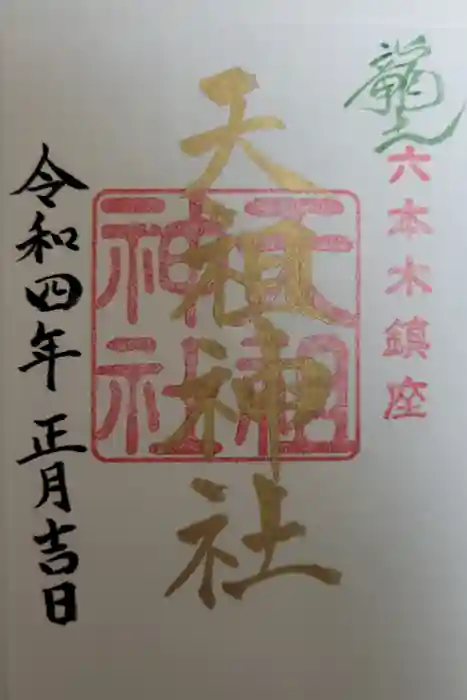 龍土
六本木鎮座
天祖神社
天祖
神社
令和四年 正月吉日